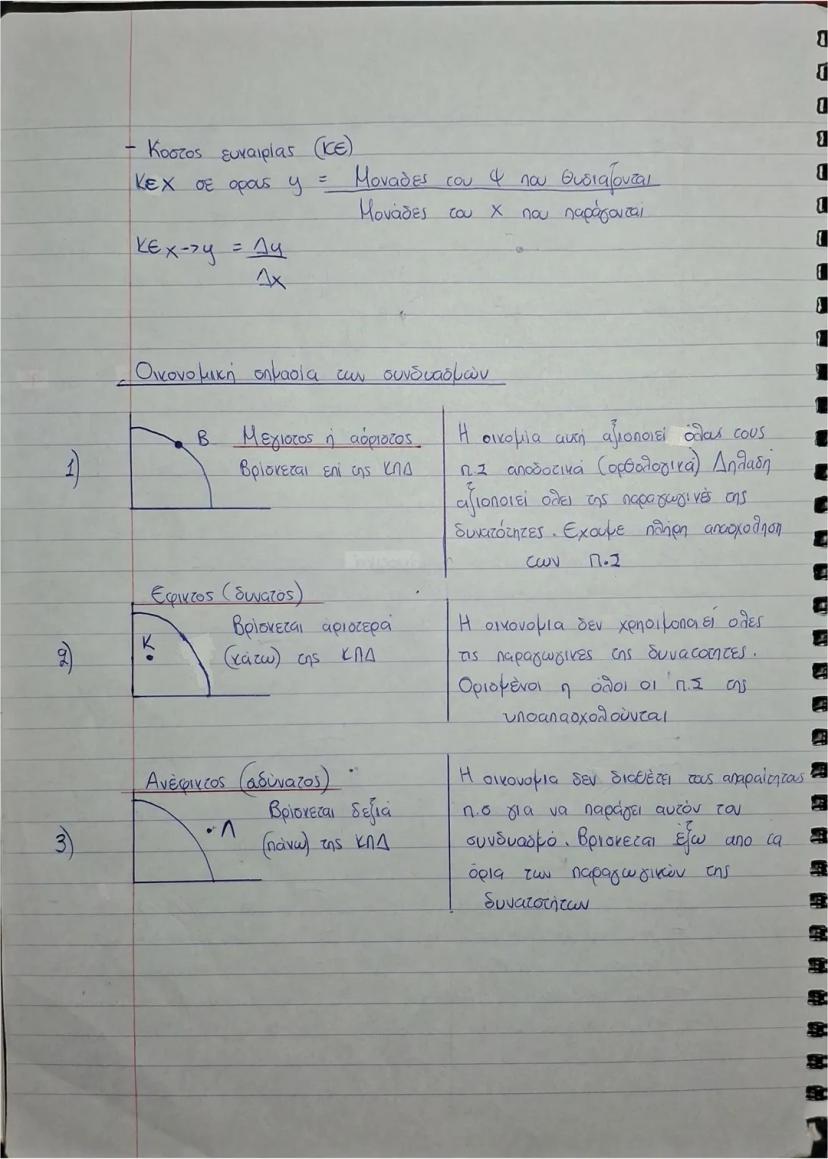 - Κοστος ευναιρίας (ΚΕ)
ΚΕΧ σε ορους y = Μοναδες του Ψ που θυσιαζονται
Μονάδες του Χ που παράγονται
ΚΕ x->y = Δy
Δx
Οικονομική σημασία των συνδυασμών
1)
Β
Μέγιστος ή αόριστος
Βρίσκεται επί της ΚΠΔ
Η οικομία αυτή αξιοποιεί όλους τους
Π.Σ αποδοτικά (ορθολογικά) Δηλαδή
αξιοποιεί όλει της παραγωγινές της
δυνατότητες. Εχουμε πλήρη απασχοληση
των Π.Σ
2)
Εφικτος (δυνατός)
Κ
Βρίσκεται αριστερά
(κάτω) της ΚΠΔ
Η οικονομια δεν χρησιμοποιεί ολες
τις παραγωγικες της δυνατοτητες.
Ορισμένοι η όλοι οι Π.Σ της
υποαπασχολούνται
3)
Ανέφικτος (αδύνατος)
Λ
Βρίσκεται δεξιά
(πάνω) της ΚΠΔ
Η οικονομια δεν διαθέτει τους απαραίτητους
π.σ για να παράγει αυτόν τον
συνδυασμό. Βρισκεται έξω απο τα
όρια των παραγωγικών της
δυνατοτήτων